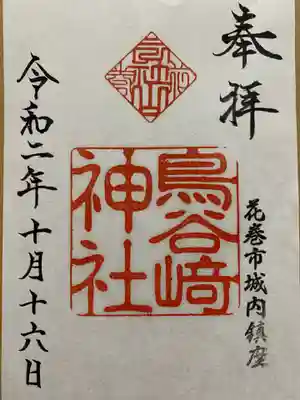 奉拝
花巻市城内鎮座
鳥谷崎
神社
令和二年十月十六日